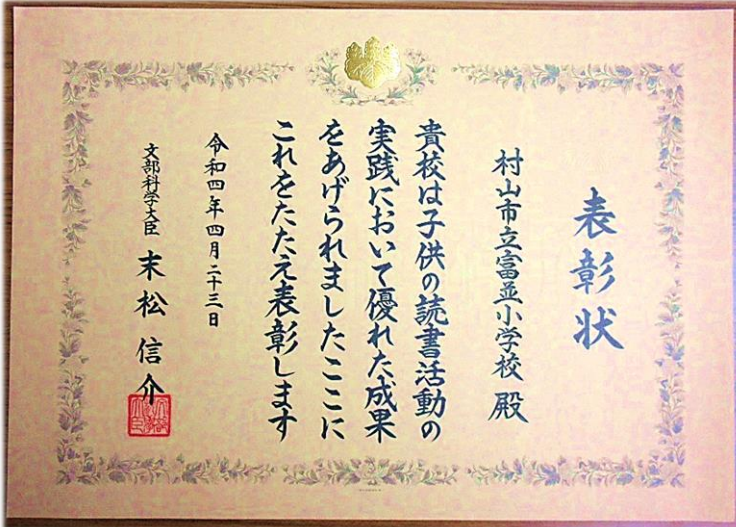 表彰状
村山市立富並小学校 殿
貴校は子供の読書活動の
実践において優れた成果
をあげられましたここに
これをたたえ表彰します
令和四年四月二十三日
文部科学大臣 末松信介